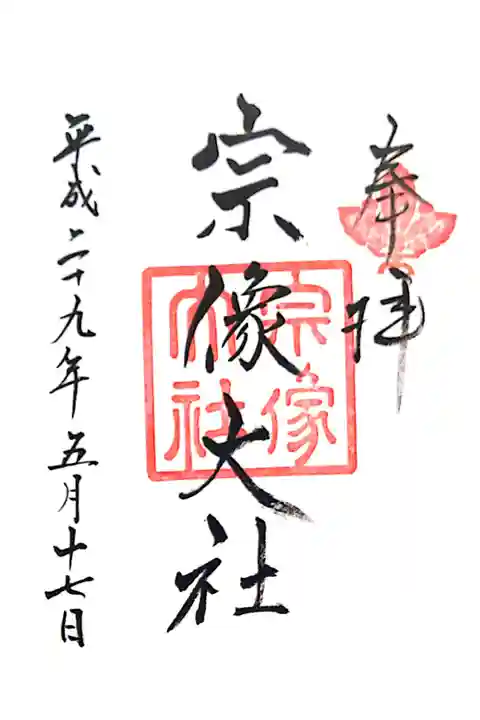 奉拝
宗像大社
宗像
大社
平成二十九年五月十七日